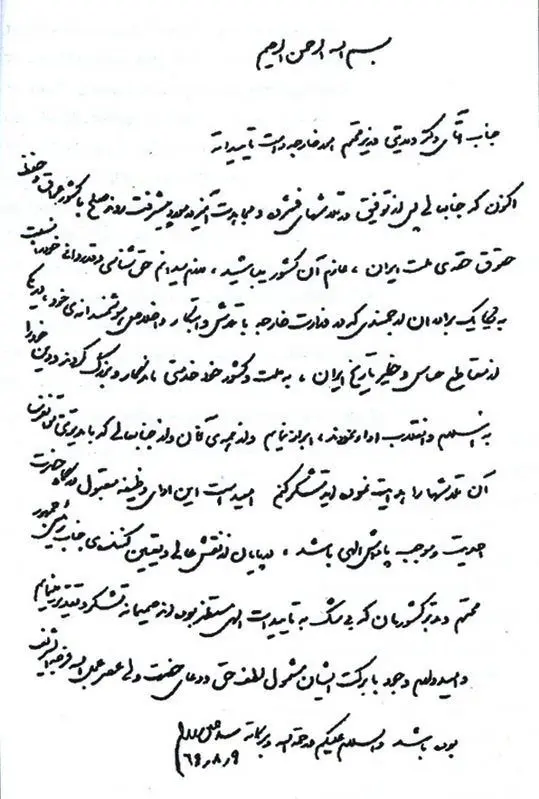 بسم الله الرحمن الرحیم
جناب آقای دکتر ولایتی وزیر محترم امور خارجه دامت تاییداته
اکنون که جنابعالی پس از توفیق در تلاشهای فشرده و مجاهدت آمیز در مورد پیشرفت روند صلح با کشور عراق و حفظ
حقوق حقه‌ی ملت ایران، عازم آن کشور میباشید، لازم میدانم حق شناسی و قدردانی خود را نسبت
به یکایک برادران ارجمندی که در وزارت خارجه با تلاش و ابتکار و اخلاص هوشمندانه‌ی خود، در یکی
از مقاطع حساس و خطیر تاریخ ایران، به ملت و کشور خود خدمتی ماندگار و بزرگ کردند و دین خود را
به اسلام و انقلاب ادا نمودند، ابراز نمایم و از همه‌ی آنان و از جنابعالی که با مدیریتی قوی
آن تلاشها را هدایت نمودید تشکر کنم امید است این ادای وظیفه مقبول درگاه حضرت
احدیت و موجب پاداش الهی باشد، در پایان از نقش عالی و تعیین کننده‌ی جناب رئیس جمهور
محترم و مدبر کشورمان که بی شک به تاییدات الهی مستظهر بوده‌اند صمیمانه تشکر و تقدیر مینمایم
و امیدوارم وجود با برکت ایشان مشمول لطف حق و دعای حضرت ولی عصر عجل الله فرجه الشریف
بوده باشد والسلام علیکم و رحمة الله و برکاته سید علی
۶۹٫۸٫۹